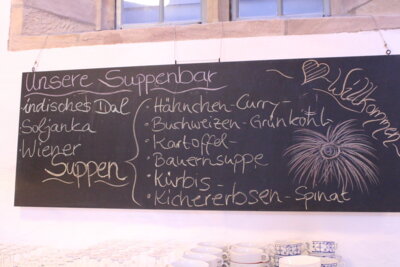 Unsere Suppenbar
indisches Dal
Soljanka
Wiener
Suppen
· Hähnchen-Curry-
· Buchweizen-Grünkohl-
· Kartoffel-
· Bauernsuppe
· Kürbis-
· Kichererbsen-Spinat
Willkommen